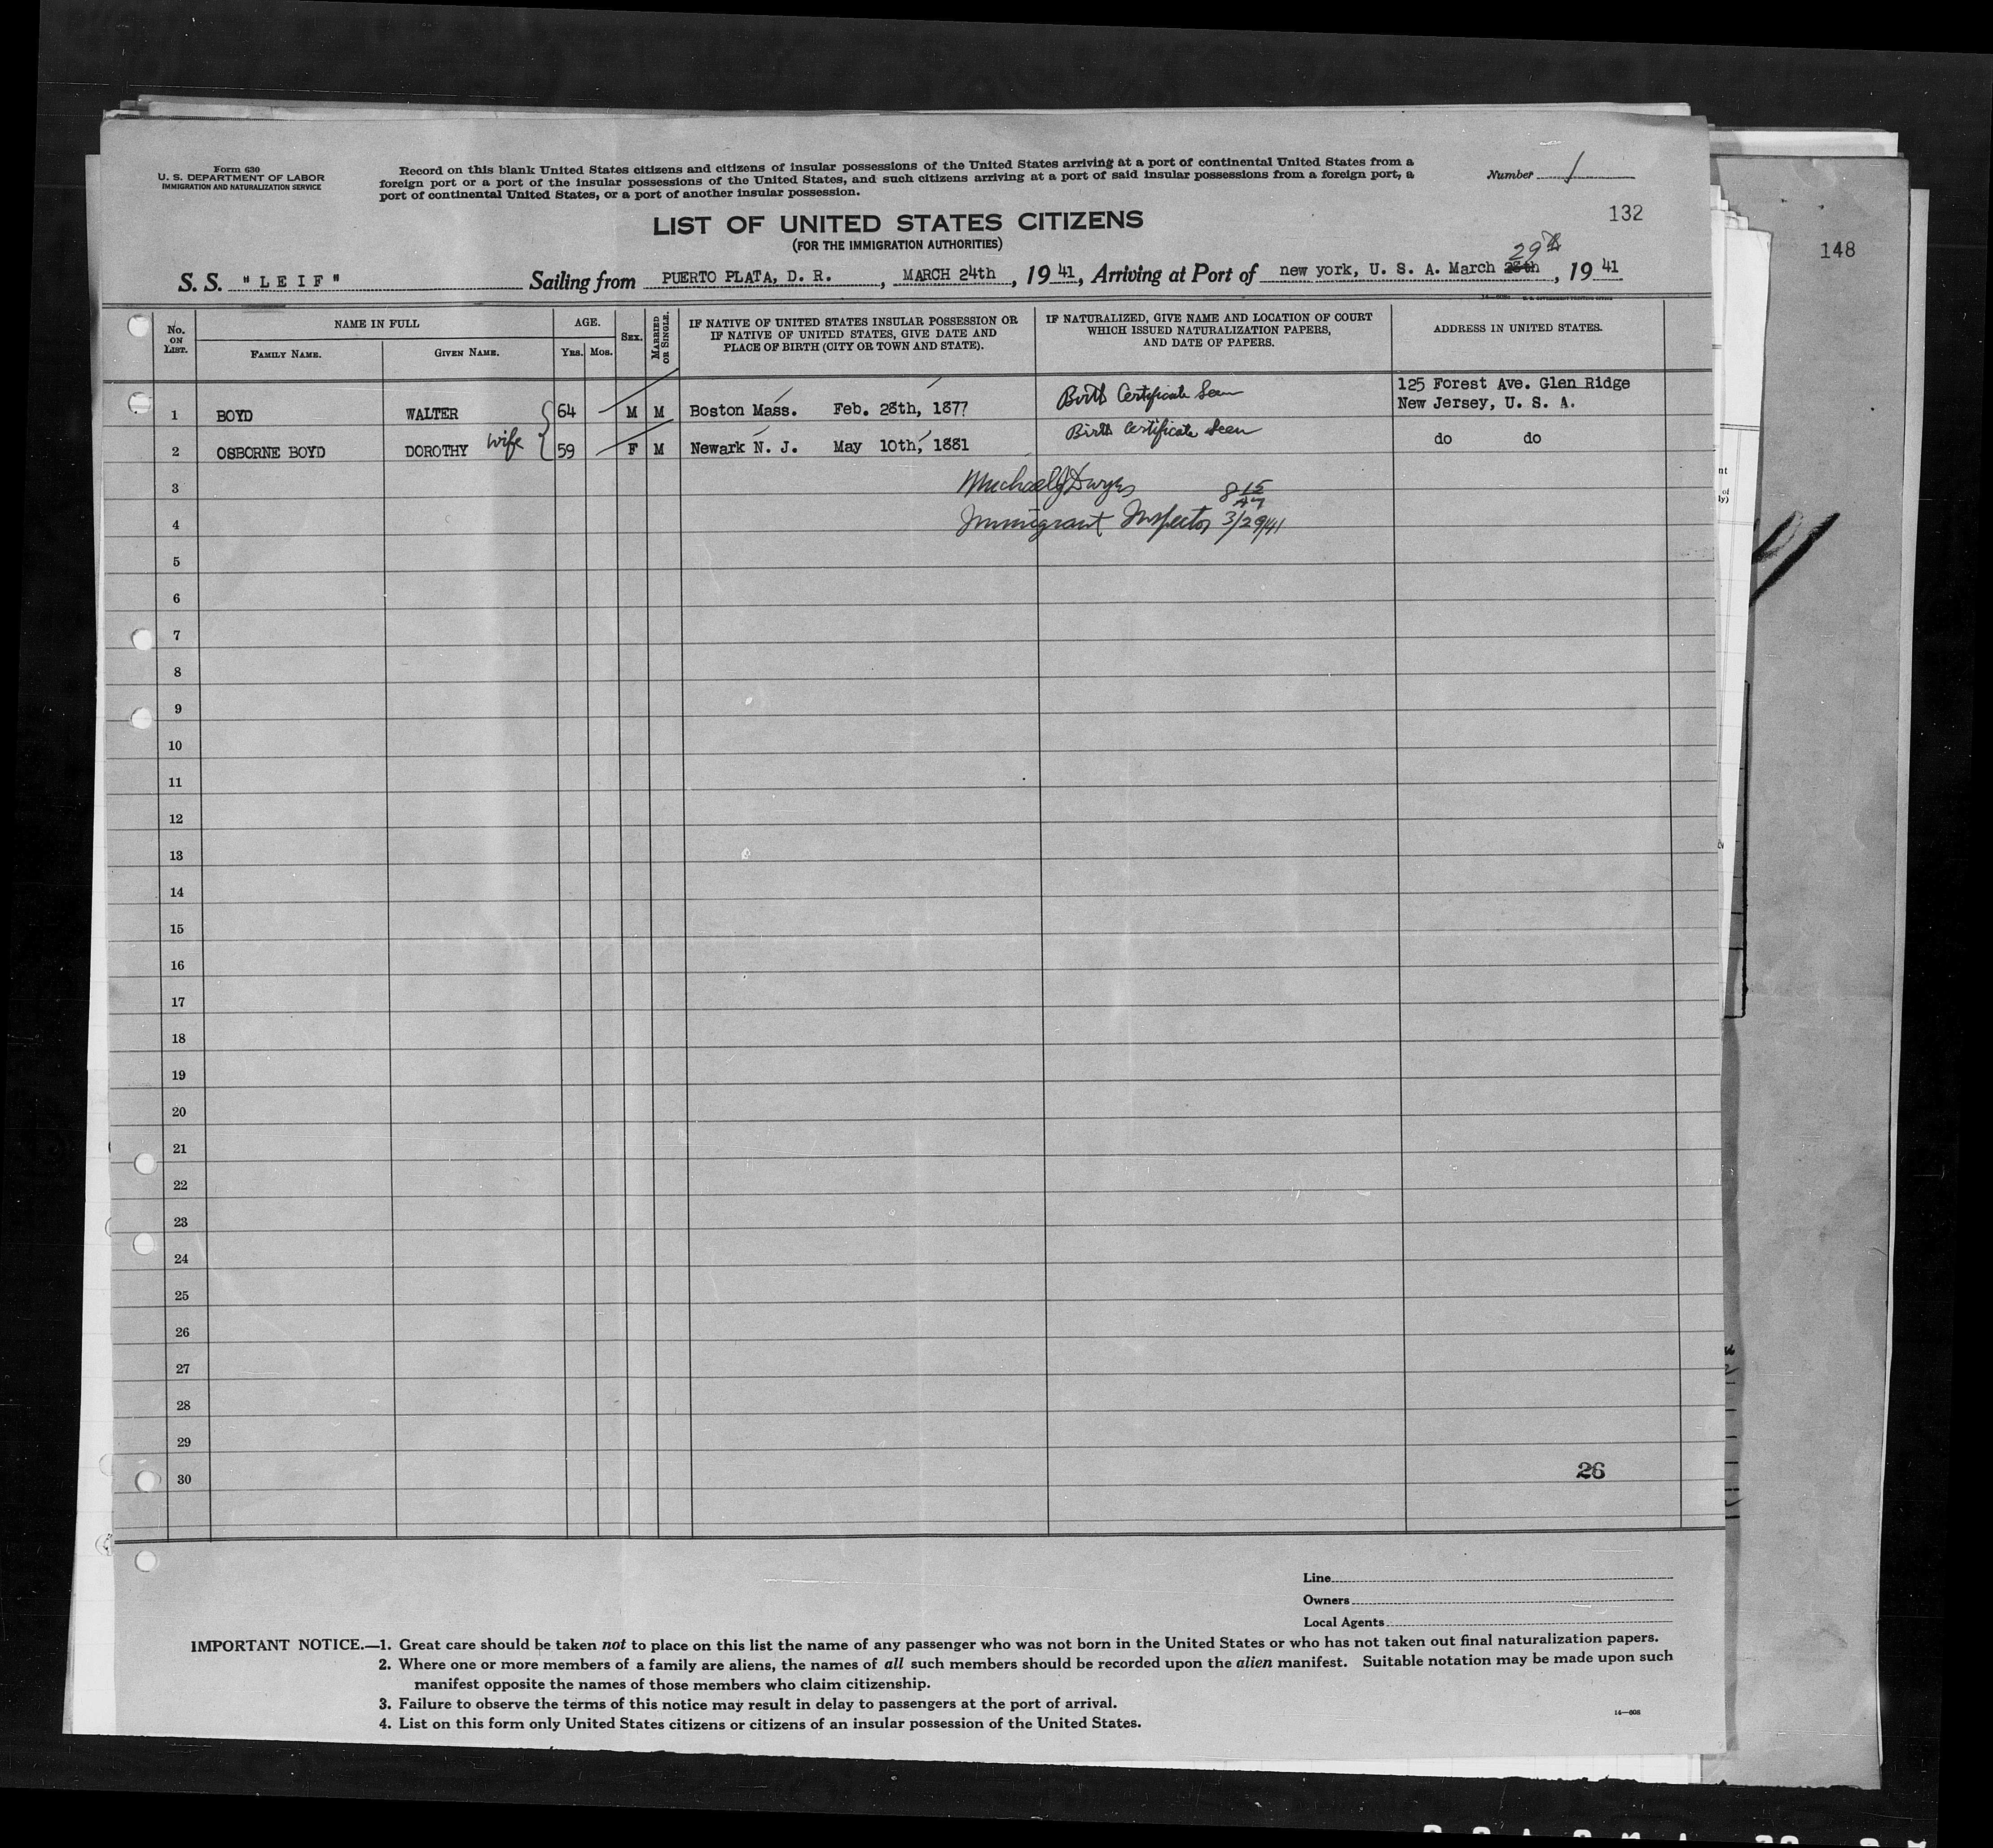 Form 630
U. S. DEPARTMENT OF LABOR
IMMIGRATION AND NATURALIZATION SERVICE
Record on this blank United States citizens and citizens of insular possessions of the United States arriving at a port of continental United States from a
foreign port or a port of the insular possessions of the United States, and such citizens arriving at a port of said insular possessions from a foreign port, a
port of continental United States, or a port of another insular possession.
Number 1
132
148
LIST OF UNITED STATES CITIZENS
(FOR THE IMMIGRATION AUTHORITIES)
29th
S. S. "LEIF" Sailing from PUERTO PLATA, D. R., MARCH 24th, 19 41, Arriving at Port of new york, U. S. A. March 28th, 19 41
No. ON LIST.
NAME IN FULL
FAMILY NAME.
GIVEN NAME.
AGE.
YRS. MOS.
SEX.
MARRIED OR SINGLE.
IF NATIVE OF UNITED STATES INSULAR POSSESSION OR
IF NATIVE OF UNITED STATES, GIVE DATE AND
PLACE OF BIRTH (CITY OR TOWN AND STATE).
IF NATURALIZED, GIVE NAME AND LOCATION OF COURT
WHICH ISSUED NATURALIZATION PAPERS,
AND DATE OF PAPERS.
ADDRESS IN UNITED STATES.
1 BOYD WALTER 64 M M Boston Mass. Feb. 28th, 1877 Birth Certificate Seen 125 Forest Ave. Glen Ridge
New Jersey, U. S. A.
2 OSBORNE BOYD DOROTHY wife 59 F M Newark N. J. May 10th, 1881 Birth Certificate Seen do do
3 Michael J Dwyer 8 15 AM
4 Immigrant Inspector 3/29/41
5
6
7
8
9
10
11
12
13
14
15
16
17
18
19
20
21
22
23
24
25
26
27
28
29
30
26
Line
Owners
Local Agents
IMPORTANT NOTICE.—1. Great care should be taken not to place on this list the name of any passenger who was not born in the United States or who has not taken out final naturalization papers.
2. Where one or more members of a family are aliens, the names of all such members should be recorded upon the alien manifest. Suitable notation may be made upon such
manifest opposite the names of those members who claim citizenship.
3. Failure to observe the terms of this notice may result in delay to passengers at the port of arrival.
4. List on this form only United States citizens or citizens of an insular possession of the United States.
14—608